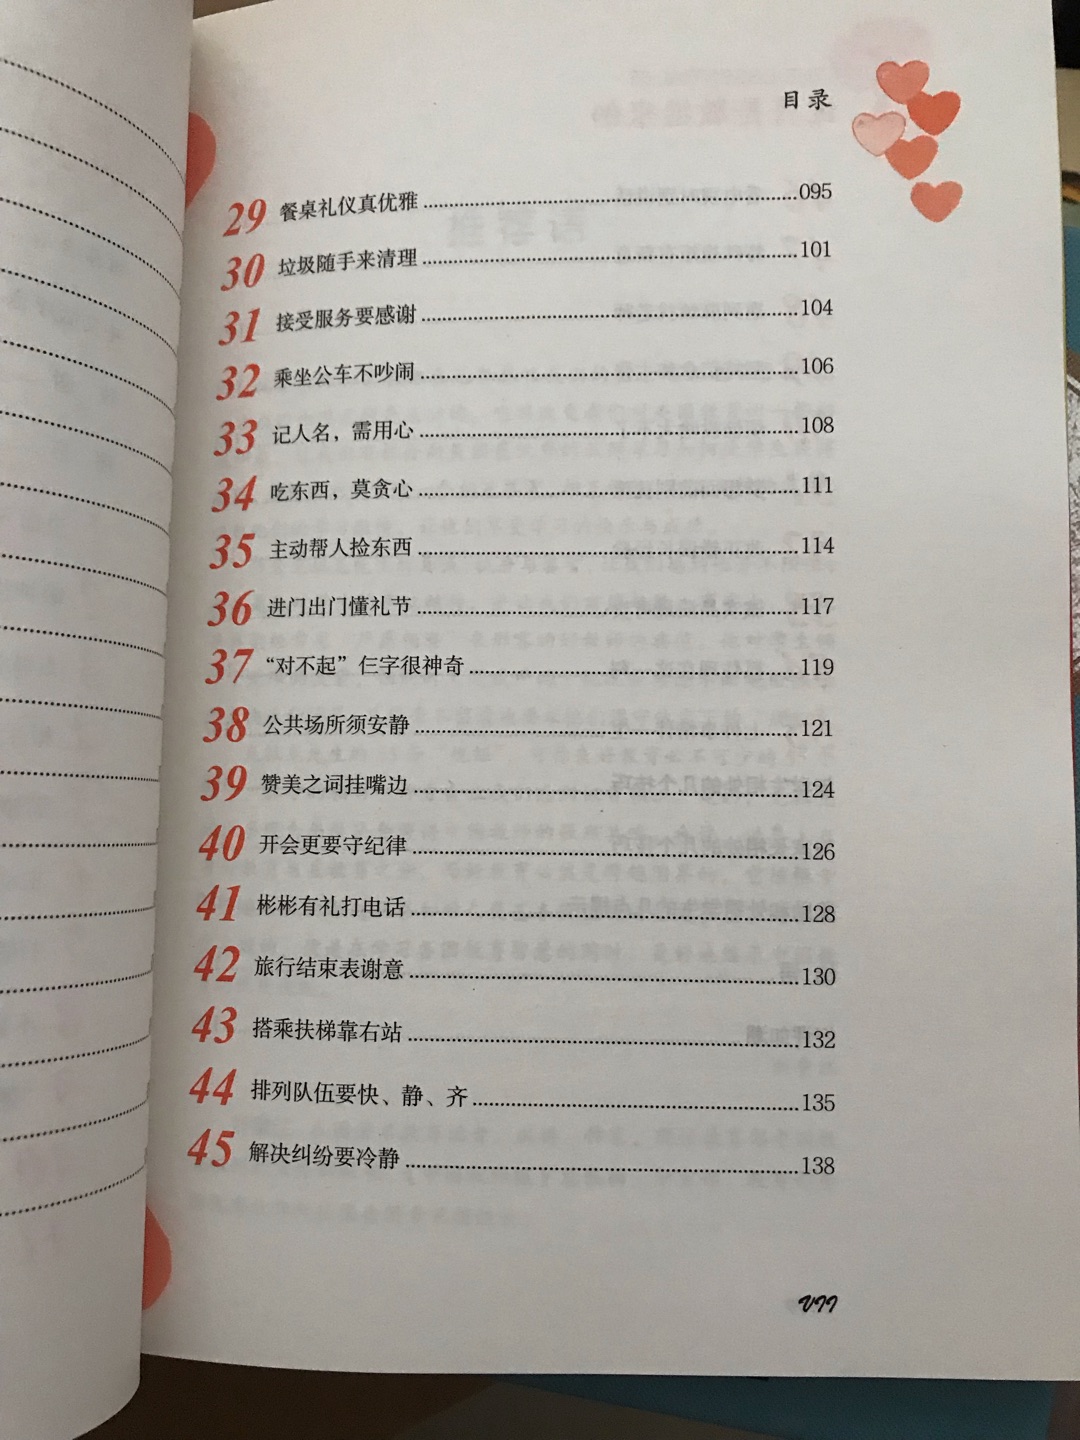 目录
29 餐桌礼仪真优雅 095
30 垃圾随手来清理 101
31 接受服务要感谢 104
32 乘坐公车不吵闹 106
33 记人名，需用心 108
34 吃东西，莫贪心 111
35 主动帮人捡东西 114
36 进门出门懂礼节 117
37 “对不起”仨字很神奇 119
38 公共场所须安静 121
39 赞美之词挂嘴边 124
40 开会更要守纪律 126
41 彬彬有礼打电话 128
42 旅行结束表谢意 130
43 搭乘扶梯靠右站 132
44 排列队伍要快、静、齐 135
45 解决纠纷要冷静 138
VII